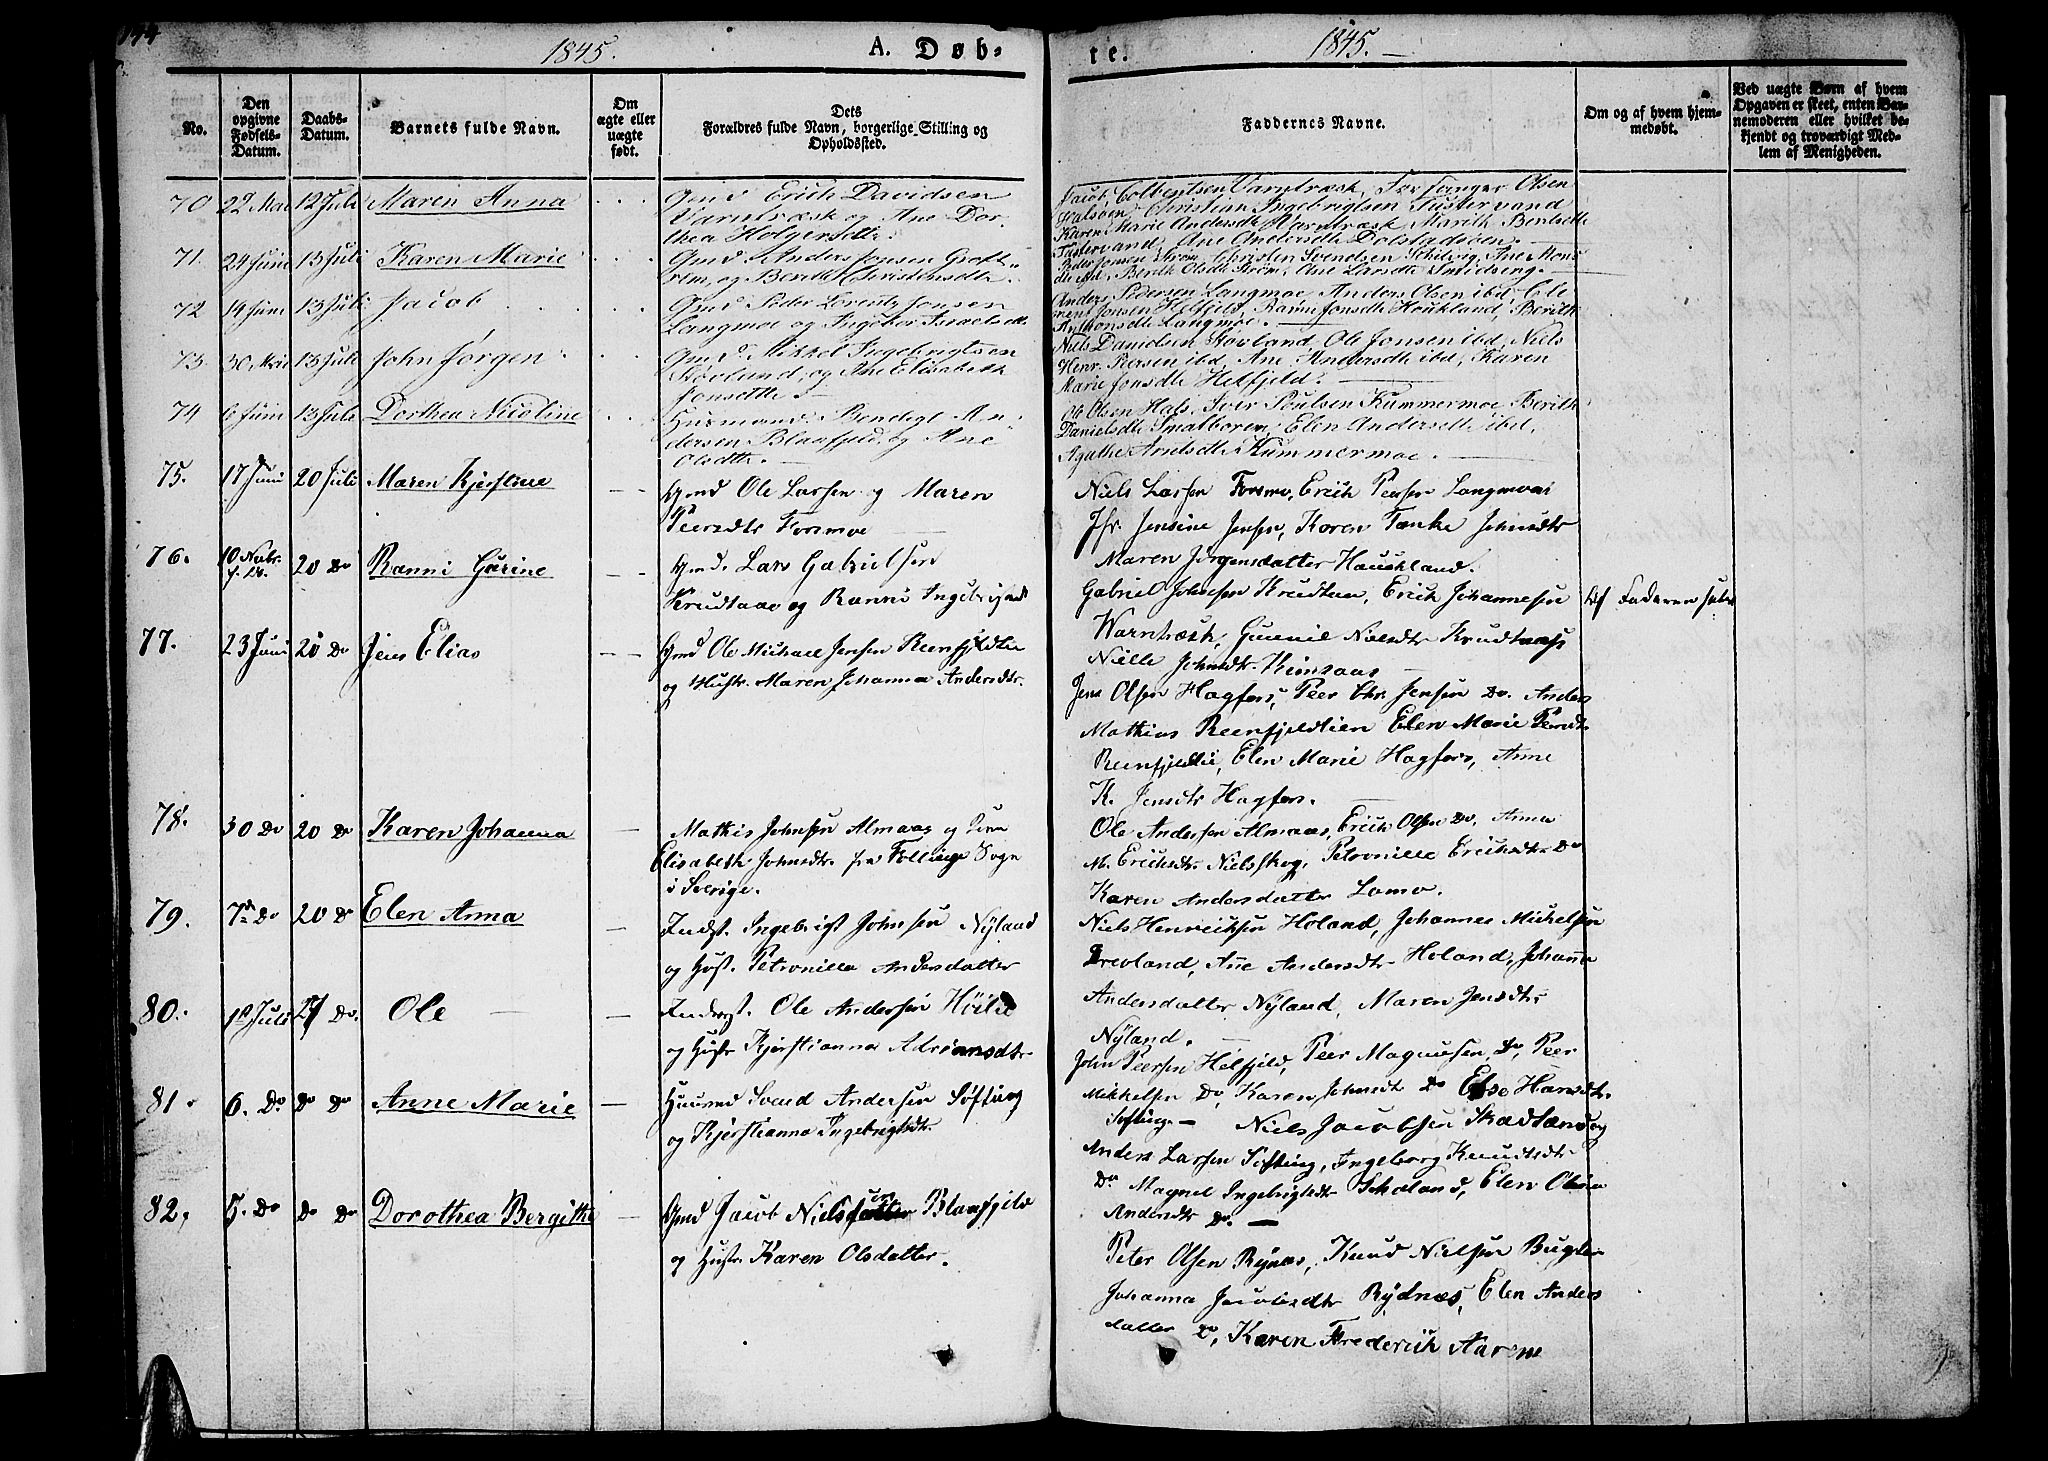 144
1845.
A. Døb-
te.
1845. —
No.
Den opgivne Fødsels-Datum.
Daabs-Datum.
Barnets fulde Navn.
Om ægte eller uægte født.
Dets Forældres fulde Navn, borgerlige Stilling og Opholdssted.
Faddernes Navne.
Om og af hvem hjemmedøbt.
Ved uægte Børn af hvem Opgaven er skeet, enten Barnemoderen eller hvilket bekjendt og troværdigt Medlem af Menigheden.
70 22 Mai 12 Juli Maren Anna
Gmd Erich Davidsen
Varntræsk og Ane Dor-
thea Holgersdtr.
Jacob Colbentsen Varntræsk, Forsanger Olsen
Halsøen, Christian Ingebrigtsen Tustervand
Karen Marie Andersdtr Varntræsk, Marith Bentsdtr
Tustervand, Ane Andersdtr Dolstadsøen. —
71. 24 Juni 13 Juli Karen Marie
Gmd Anders Jonsen Grott-
rem, og Berith Christensdtr.
Peder Jonsen Strøm, Christen Svendsen Schilvig, Ane Mons
dtr ibd, Berith Olsdtr Strøm, Ane Larsdtr Smidseng. —
72 14 Juni 13 Juli Jacob
Gmd Peder Lorentz Jonsen
Langmoe og Ingebor Israelsdtr
Anders Pedersen Langmoe, Anders Olsen ibd, Cle
ment Jonsen Helfjeld, Rannu Jonsdtr Houkland, Berith
Anthonsdtr Langmoe. —
73. 30 Mai 13 Juli John Jørgen
Gmd Mikkel Ingebrigtsen
Støvland, og Ane Elisabeth
Jonsdtr
Niels Davidsen Støvland, Ole Jonsen ibd, Niels
Henr. Persen ibd, Ane Andersdtr ibd, Karen
Marie Jonsdtr Helfjeld. —
74 6 Juni 13 Juli Dorthea Nicoline
Husmand Bendigt An-
dersen Blaafjeld, og Ane
Olsdtr. —
Ole Olsen Hals, Iver Poulsen Kummermoe, Berith
Danielsdtr Smalboren, Elen Andersdtr ibd,
Agathe Arntsdtr Kummermoe. —
75. 17 Juni 20 Juli Maren Kjerstine — —
Gmd Ole Larsen og Maren
Peersdtr Forsmoe —
Niels Larsen Forsmo, Erich Peersen Langmoai
Jfr. Jensine Jensen, Karen Tanke Johnsdtr
Maren Jørgensdatter Hauckland.
76. 10 Novbr. 20 Do Rønni Gurine — —
Gmd. Lars Gabrielsen
Krudtaae og Rønni Ingebrigtsdtr
Gabriel Johnsen Krudtaa, Erich Johannesen
Warntræsk, Gunnil Nielsdtr Krudtaas
Nille Johnsdtr Kimsaas —
Af Faderen selv
77. 23 Juni 20 Do Jens Elias — —
Gmd Ole Michael Jensen Reenfjeldtie
og Hustr. Maren Johanna Andersdtr.
Jens Olsen Hagfors, Peer Chr. Jensen Do. Anders
Mathias Reenfjeldtien Elen Marie Peersdtr
Reenfjeldtie, Elen Marie Hagfors, Anne
K. Jensdtr Hagfors.
78. 30 Do 20 Do Karen Johanna —
Mathis Johnsen Almaas og
Elisabeth Johnsdtr. fra Føllinge Sogn
i Sverige.
Ole Andersen Almaas, Erich Olsen Do, Anna
M. Erichsdtr Nielsskog, Petronille Erichsdtr Do
Karen Andersdatter Lomo.
79. 7de Do 20 Do Elen Anna —
Inderst. Ingebrigt Johnsen Nyland
og Hust. Petronilla Andersdatter
Niels Henriksen Holand, Johannes Mickelsen
Drevland, Ane Andersdtr Holand, Johanna
Andersdatter Nyland, Maren Jensdtr
Nyland. —
80. 1ste Juli 27 Do. Ole — —
Inderst. Ole Andersen Høilie
og Hustr Kjerstianna Adriansdtr
John Peersen Helfjeld, Peer Magnusen Do, Peer
Mikkelsen Do, Karen Johnsdtr Do Else Hansdtr.
Søfting —
81. 6. Do Do Do Anne Marie —
Huusmd Svend Andersen Søfting
og Kjerstianna Ingebrigtsdtr.
Niels Jacobsen
Anders Larsen Søfting, Ingeborg Knudsdtr
Do Magnel Ingebrigtsdtr Skoland, Elen Olina
Andersdtr Do. —
82. 5. Do Do Do Dorothea Bergithe —
Gmd Jacob Nielssen Blaafjeld
og Hustr. Karen Olsdatter.
Peter Olsen Rynes, Knud Nielsen
Johanna Jacobsdtr Rydnes, Elen Anders
datter Do, Karen Frederich Aarene